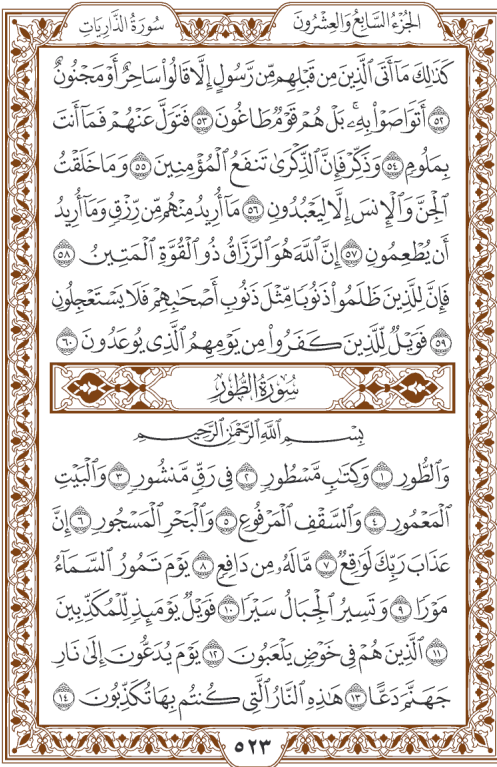 الجُزْءُ السَّابِعُ وَالعِشْرُونَ سُورَةُ الذَّارِيَاتِ
كَذَٰلِكَ مَآ أَتَى ٱلَّذِينَ مِن قَبۡلِهِم مِّن رَّسُولٍ إِلَّا قَالُواْ سَاحِرٌ أَوۡ مَجۡنُونٌ
٥٢ أَتَوَاصَوۡاْ بِهِۦۚ بَلۡ هُمۡ قَوۡمٞ طَاغُونَ ٥٣ فَتَوَلَّ عَنۡهُمۡ فَمَآ أَنتَ
بِمَلُومٖ ٥٤ وَذَكِّرۡ فَإِنَّ ٱلذِّكۡرَىٰ تَنفَعُ ٱلۡمُؤۡمِنِينَ ٥٥ وَمَا خَلَقۡتُ
ٱلۡجِنَّ وَٱلۡإِنسَ إِلَّا لِيَعۡبُدُونِ ٥٦ مَآ أُرِيدُ مِنۡهُم مِّن رِّزۡقٖ وَمَآ أُرِيدُ
أَن يُطۡعِمُونِ ٥٧ إِنَّ ٱللَّهَ هُوَ ٱلرَّزَّاقُ ذُو ٱلۡقُوَّةِ ٱلۡمَتِينُ ٥٨
فَإِنَّ لِلَّذِينَ ظَلَمُواْ ذَنُوبٗا مِّثۡلَ ذَنُوبِ أَصۡحَٰبِهِمۡ فَلَا يَسۡتَعۡجِلُونِ
٥٩ فَوَيۡلٞ لِّلَّذِينَ كَفَرُواْ مِن يَوۡمِهِمُ ٱلَّذِي يُوعَدُونَ ٦٠
سُورَةُ الطُّورِ
بِسۡمِ ٱللَّهِ ٱلرَّحۡمَٰنِ ٱلرَّحِيمِ
وَٱلطُّورِ ١ وَكِتَٰبٖ مَّسۡطُورٖ ٢ فِي رَقّٖ مَّنشُورٖ ٣ وَٱلۡبَيۡتِ
ٱلۡمَعۡمُورِ ٤ وَٱلسَّقۡفِ ٱلۡمَرۡفُوعِ ٥ وَٱلۡبَحۡرِ ٱلۡمَسۡجُورِ ٦ إِنَّ
عَذَابَ رَبِّكَ لَوَٰقِعٞ ٧ مَّا لَهُۥ مِن دَافِعٖ ٨ يَوۡمَ تَمُورُ ٱلسَّمَآءُ
مَوۡرٗا ٩ وَتَسِيرُ ٱلۡجِبَالُ سَيۡرٗا ١٠ فَوَيۡلٞ يَوۡمَئِذٖ لِّلۡمُكَذِّبِينَ
١١ ٱلَّذِينَ هُمۡ فِي خَوۡضٖ يَلۡعَبُونَ ١٢ يَوۡمَ يُدَعُّونَ إِلَىٰ نَارِ
جَهَنَّمَ دَعًّا ١٣ هَٰذِهِ ٱلنَّارُ ٱلَّتِي كُنتُم بِهَا تُكَذِّبُونَ ١٤
٥٢٣